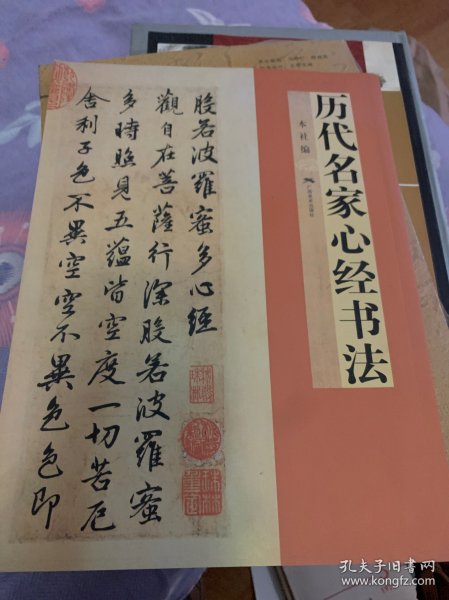 历代名家心经书法
本社编
广西美术出版社
般若波羅蜜多心經
觀自在菩薩行深般若波羅蜜
多時照見五蘊皆空度一切苦厄
舍利子色不異空空不異色色即
孔夫子旧书网
www.kongfz.com